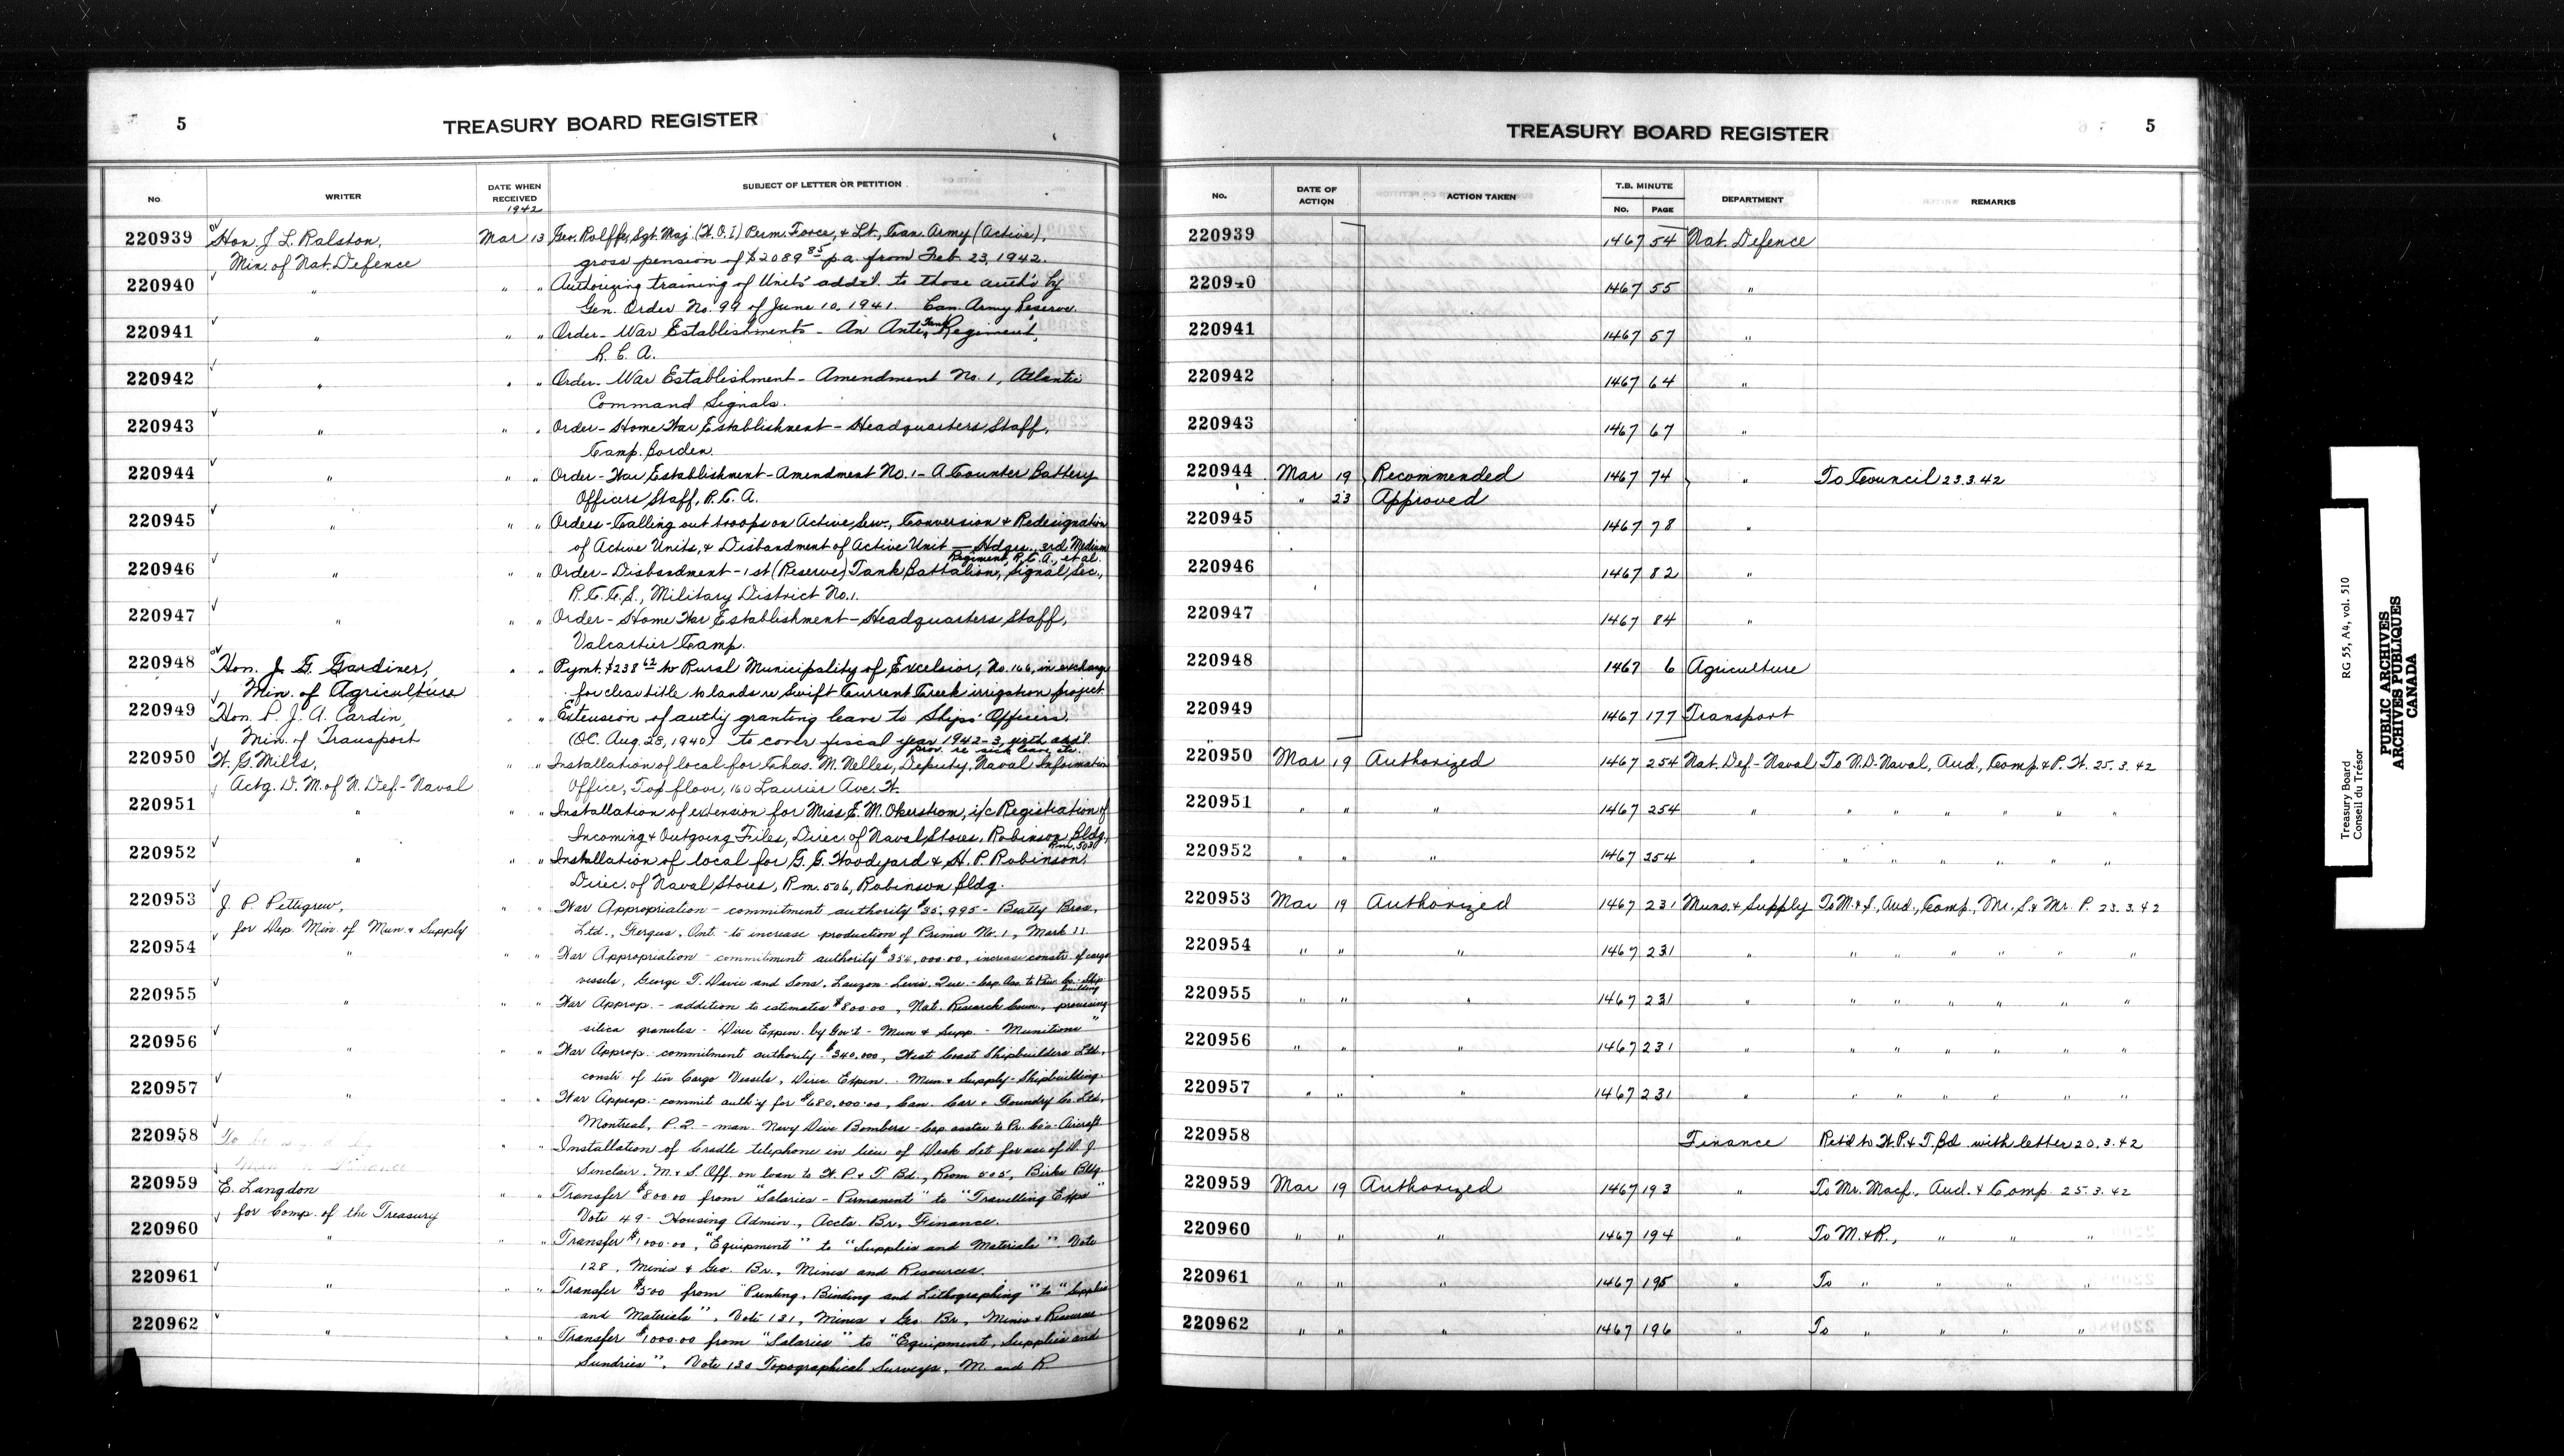 5
TREASURY BOARD REGISTER
No. WRITER DATE WHEN RECEIVED 1942 SUBJECT OF LETTER OR PETITION
220939 Hon. J. L. Ralston, Mar 13 Geo. Rolffe, Sgt. Maj. (W.O.I) Perm. Force, & Lt., Can. Army (Active),
Min. of Nat. Defence gross pension of $2089 85 p.a. from Feb. 23, 1942.
220940 " " " Authorizing training of Units add'l. to those auth'd by
Gen. Order No. 99 of June 10, 1941. Can. Army Reserve.
220941 " " " Order - War Establishments - An Anti-Tank Regiment,
R. C. A.
220942 " " " Order - War Establishment - Amendment No. 1, Atlantic
Command Signals.
220943 " " " Order - Home War Establishment - Headquarters Staff,
Camp Borden.
220944 " " " Order - War Establishment - Amendment No. 1 - A Counter Battery
Officers Staff, R.C.A.
220945 " " " Orders - Calling out troops on Active Serv., Conversion & Redesignation
of Active Units, & Disbandment of Active Unit — Hdqrs., 3rd Medium
Regiment, R.C.A., et al.
220946 " " " Order - Disbandment - 1st (Reserve) Tank Battalion, Signal Sec.,
R.C.C.S., Military District No. 1.
220947 " " " Order - Home War Establishment - Headquarters Staff,
Valcartier Camp.
220948 Hon. J. G. Gardiner, " " Pymt. $238 62 to Rural Municipality of Excelsior, No. 166, in exchange
Min. of Agriculture for clear title to lands re Swift Current Creek irrigation project.
220949 Hon. P. J. A. Cardin, " " Extension of auth'y granting leave to Ships' Officers.
Min. of Transport (OC. Aug. 28, 1940) to cover fiscal year 1942-3, with add'l.
prov. re sick leave, etc.
220950 W. G. Mills, " " Installation of local for Chas. M. Nelles, Deputy, Naval Information
Actg. D. M. of N. Def. - Naval Office, Top floor, 160 Laurier Ave. W.
220951 " " " Installation of extension for Miss E. M. Okerstrom, i/c Registration of
Incoming & Outgoing Files, Direc. of Naval Stores, Robinson Bldg.,
Rm. 503
220952 " " " Installation of local for G. G. Woodyard & H. P. Robinson,
Direc. of Naval Stores, Rm. 506, Robinson Bldg.
220953 J. P. Pettigrew, " " War Appropriation - commitment authority $35,995 - Beatty Bros.
for Dep. Min. of Mun. & Supply Ltd., Fergus, Ont. - to increase production of Primer No. 1, Mark II
220954 " " " War Appropriation - commitment authority 000.00, increase constr. of cargo
vessels, George T. Davie and Sons, Lauzon - Levis, Que. - Cap. Ass. to Priv. Co. - Ship
building
220955 " " " War Approp. - addition to estimates $800.00, Nat. Research Coun., processing
silica granules - Direc Expen. by Gov't - Mun & Supp. - Munitions
220956 " " " War Approp. - commitment authority $340,000, West Coast Shipbuilders Ltd.,
constr. of ten Cargo Vessels, Direc Expen. Mun. & Supply - Shipbuilding.
220957 " " " War Approp. - commit auth'y for $680,000.00, Can. Car & Foundry Co. Ltd.,
Montreal, P.Q. - man. Navy Dive Bombers - Cap. assta. to Pr. Co's - Aircraft
220958 " " Installation of Cradle telephone in lieu of Desk Set for use of W. J.
Finance Sinclair, M. & S. Off. on loan to W. P. & T. Bd., Room 805, Birks Bldg.
220959 E. Langdon " " Transfer $800.00 from "Salaries - Permanent" to "Travelling Exps"
for Comp. of the Treasury Vote 49 - Housing Admin., Accts. Br., Finance.
220960 " " " Transfer $1,000.00, "Equipment" to "Supplies and Materials". Vote
128, Mines & Geo. Br., Mines and Resources.
220961 " " " Transfer $500 from "Printing, Binding and Lithographing" to "Supplies
and Materials", Vote 131, Mines & Geo Br., Mines & Resources
220962 " " " Transfer $1000.00 from "Salaries" to "Equipment, Supplies and
Sundries", Vote 130 Topographical Surveys, M. and R.
TREASURY BOARD REGISTER
5
No. DATE OF ACTION ACTION TAKEN T.B. MINUTE No. PAGE DEPARTMENT REMARKS
220939 1467 54 Nat. Defence
220940 1467 55 "
220941 1467 57 "
220942 1467 64 "
220943 1467 67 "
220944 Mar 19 Recommended 1467 74 " To Council 23.3.42
" 23 Approved
220945 1467 78 "
220946 1467 82 "
220947 1467 84 "
220948 1467 6 Agriculture
220949 1467 177 Transport
220950 Mar 19 Authorized 1467 254 Nat. Def - Naval To N.D. Naval, Aud., Comp. & P. W. 25.3.42
220951 " " " 1467 254 " " " " " "
220952 " " " 1467 254 " " " " " "
220953 Mar 19 Authorized 1467 231 Muns. & Supply To M. & S., Aud., Comp., Mr. S. & Mr. P. 23.3.42
220954 " " " 1467 231 " " " " " " "
220955 " " " 1467 231 " " " " " " "
220956 " " " 1467 231 " " " " " " "
220957 " " 1467 231 " " " " " " "
220958 Finance Ret'd to W.P. & T. Bd. with letter 20.3.42
220959 Mar 19 Authorized 1467 193 " To Mr. Macf., Aud. & Comp. 25.3.42
220960 " " " 1467 194 " To M. & R., " " "
220961 " " " 1467 195 " To " " " "
220962 " " " 1467 196 " To " " " "
Treasury Board RG 55, A4, vol. 510
Conseil du Trésor
PUBLIC ARCHIVES
ARCHIVES PUBLIQUES
CANADA